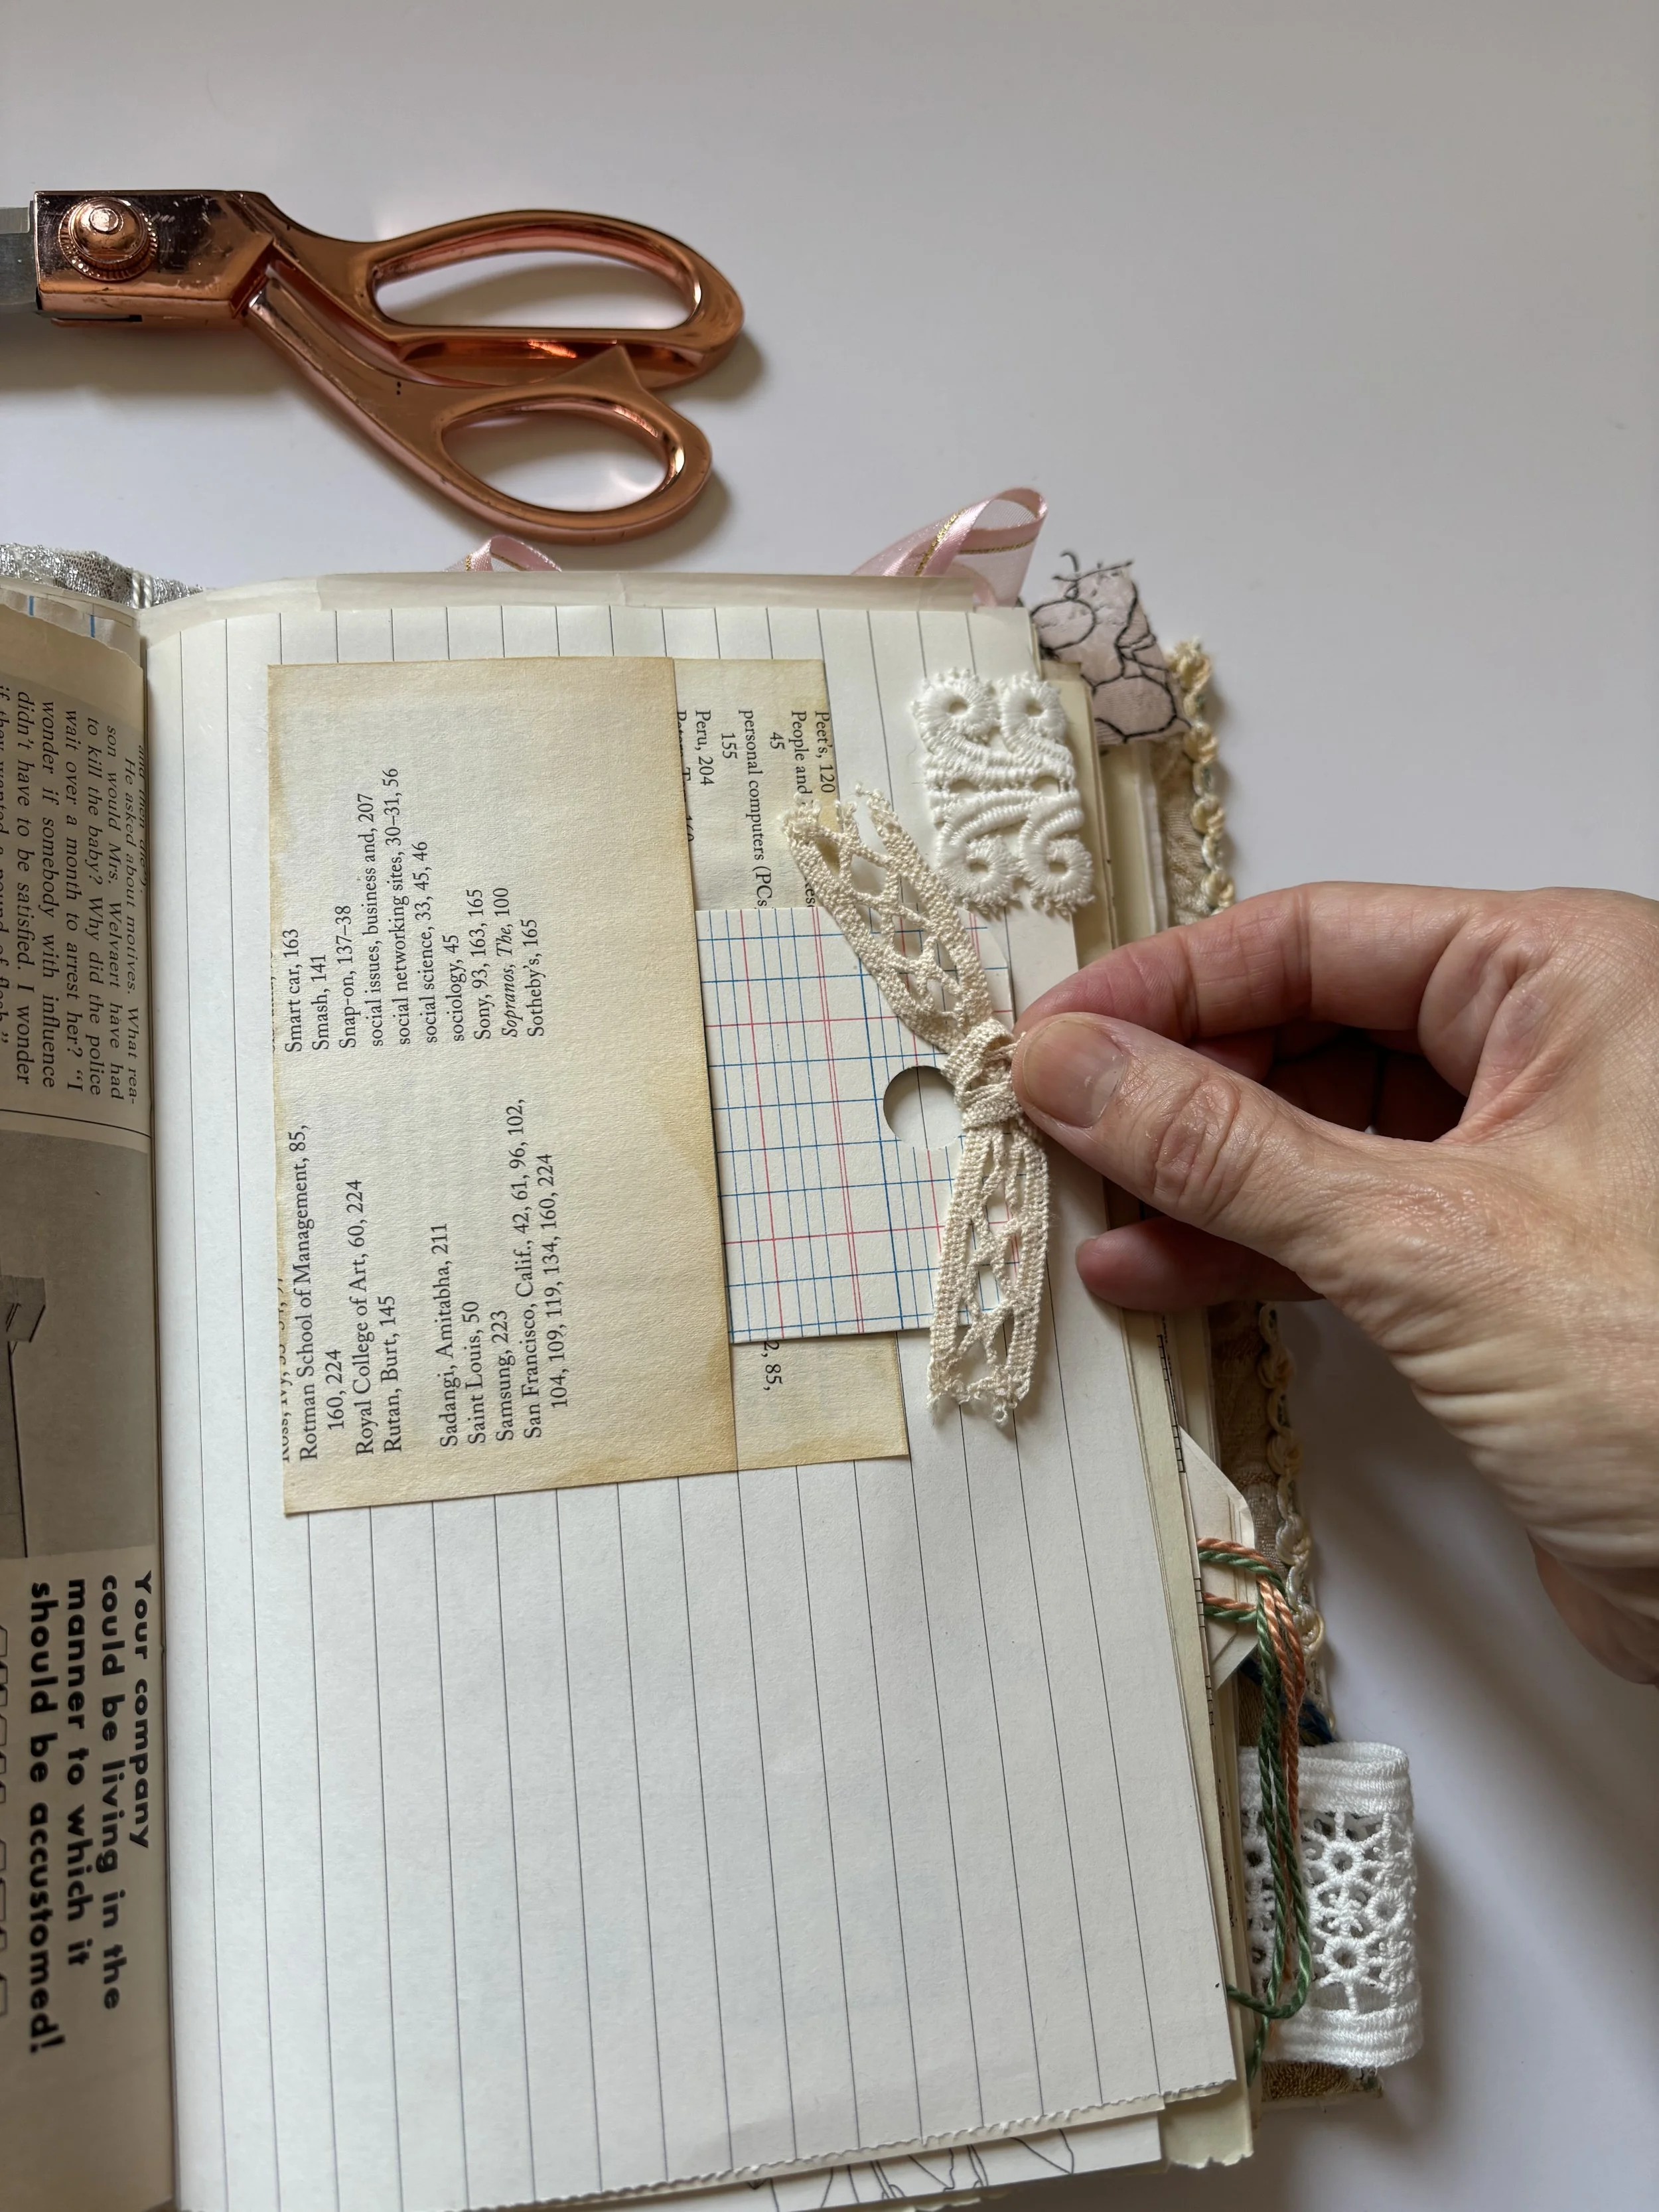 He asked about motives. What rea-
son would Mrs. Welvaert have had
to kill the baby? Why did the police
wait over a month to arrest her? "I
wonder if somebody with influence
didn't have to be satisfied. I wonder
Your company
could be living in the
manner to which it
should be accustomed!
Rotman School of Management, 85,
160, 224
Royal College of Art, 60, 224
Rutan, Burt, 145
Sadangi, Amitabha, 211
Saint Louis, 50
Samsung, 223
San Francisco, Calif., 42, 61, 96, 102,
104, 109, 119, 134, 160, 224
Smart car, 163
Smash, 141
Snap-on, 137–38
social issues, business and, 207
social networking sites, 30–31, 56
social science, 33, 45, 46
sociology, 45
Sony, 93, 163, 165
Sopranos, The, 100
Sotheby's, 165
Peet's, 120
People and
45
personal computers (PCs
155
Peru, 204
2, 85,